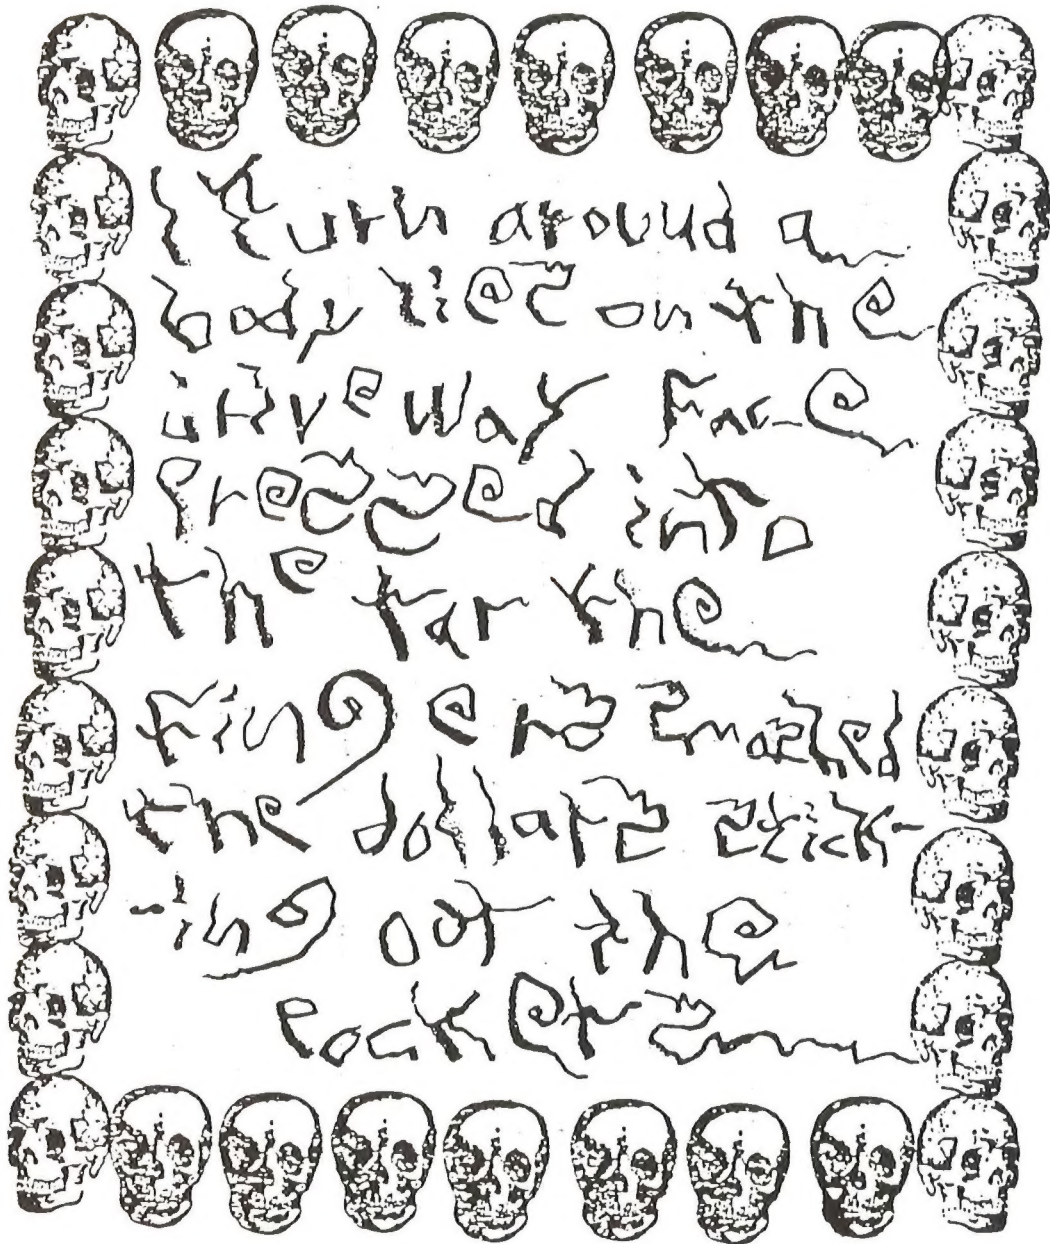 I turn around a
body lies on the
driveway Face
Pressed into
the tar the
fingers smashed
the dollars stick-
-ing out the
Pockets